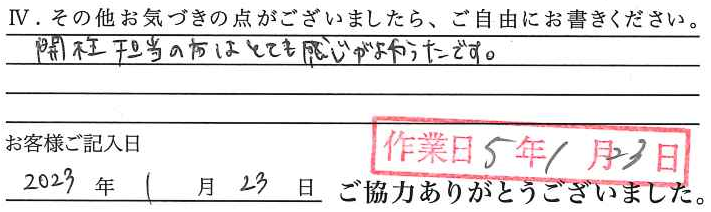 Ⅳ．その他お気づきの点がございましたら、ご自由にお書きください。
開栓担当の方はとても感じがよかったです。
お客様ご記入日
作業日5年1月23日
2023年1月23日 ご協力ありがとうございました。